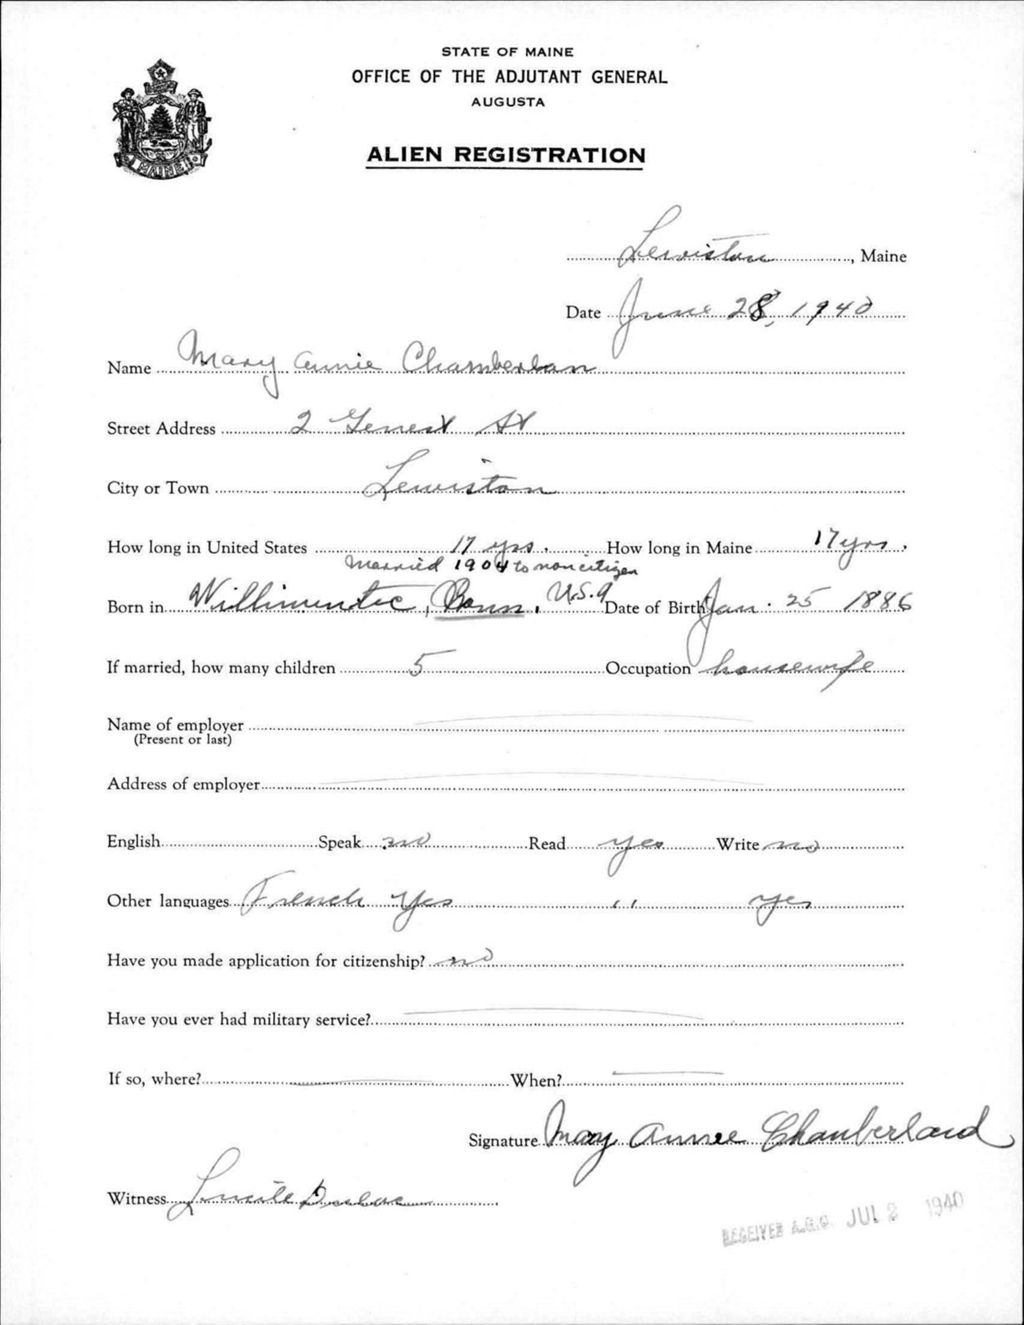 STATE OF MAINE
OFFICE OF THE ADJUTANT GENERAL
AUGUSTA
MAINE
ALIEN REGISTRATION
Lewiston, Maine
Date June 28, 1940
Name Mary Annie Chamberlan
Street Address 2 Genest St
City or Town Lewiston
How long in United States 17 yrs. How long in Maine 17 yrs.
Married 1904 to noncitizen
Born in Willimentic, Conn. U.S.A Date of Birth Jan. 25 1886
If married, how many children 5 Occupation housewife
Name of employer
(Present or last)
Address of employer
English Speak no Read yes Write no
Other languages French Yes " yes
Have you made application for citizenship? no
Have you ever had military service?
If so, where? When?
Signature Mary Annie Chamberland
Witness Lucile
RECEIVED A.G.O. JUL 2 1940